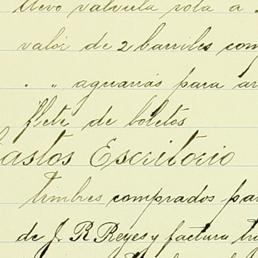 llevo valvula rota a
valor de 2 barriles com
" " aguarrás para a
flete de boletos
Gastos Escritorio
timbres comprados pa
de J. R. Reyes y factura tra